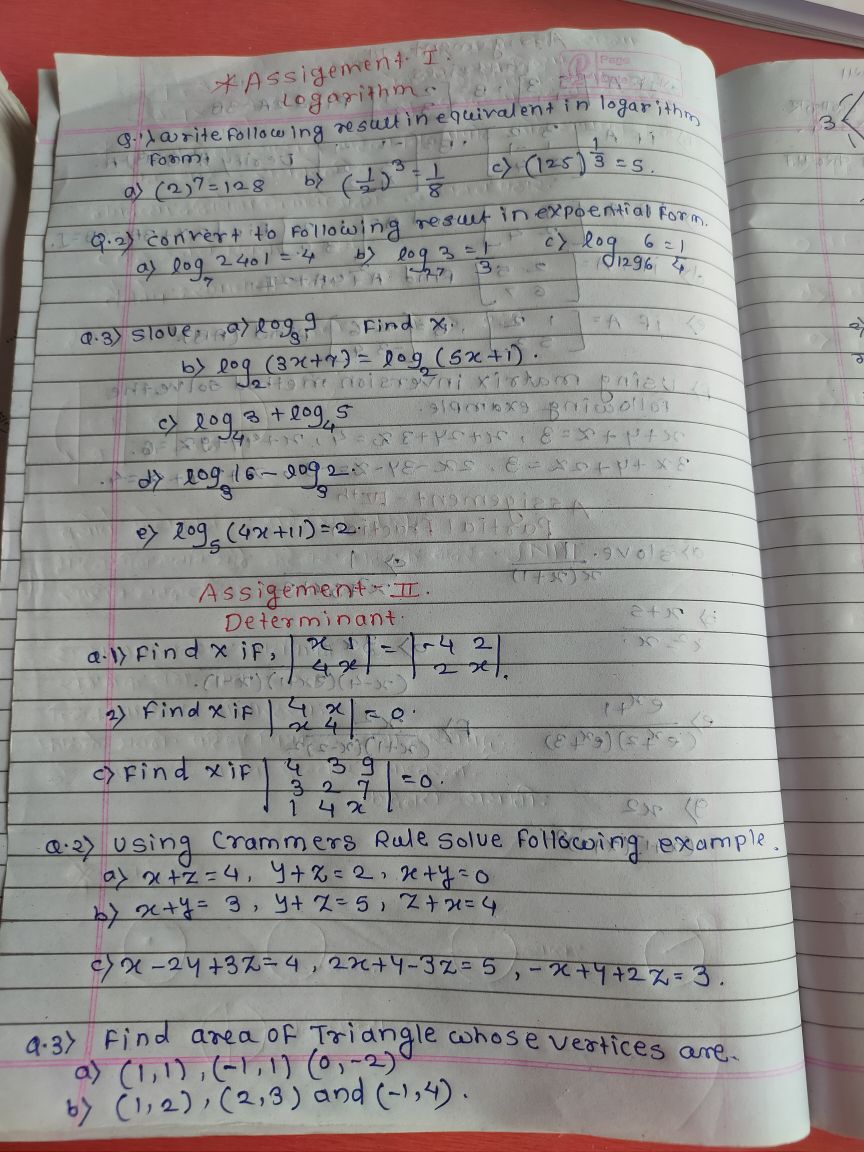 * Assigement - I.
Logarithm.
Q.1) Write following result in equivalent in logarithm
form:
a) (2)⁷ = 128 b) (1/2)³ = 1/8 c) (125)^(1/3) = 5.
Q.2) convert to following result in expoential form.
a) log₇ 2401 = 4 b) log₂₇ 3 = 1/3 c) log₁₂₉₆ 6 = 1/4.
Q.3) Slove. a) log₃ 9 Find x.
b) log₂ (3x+7) = log₂ (5x+1).
c) log₄ 3 + log₄ 5
d) log₃ 16 - log₃ 2.
e) log₅ (4x+11) = 2.
Assigement - II.
Determinant.
Q.1) Find x if, |x 1| = |-4 2|
|4 x| |2 x|.
2) Find x if |4 x| = 0.
|x 4|
c) Find x if |4 3 9|
|3 2 7| = 0.
|1 4 x|
Q.2) Using Crammers Rule Solve following example.
a) x+z=4, y+z=2, x+y=0
b) x+y=3, y+z=5, z+x=4
c) x-2y+3z=4, 2x+y-3z=5, -x+y+2z=3.
Q.3) Find area of Triangle whose vertices are.
a) (1,1), (-1,1) (0,-2)
b) (1,2), (2,3) and (-1,4).